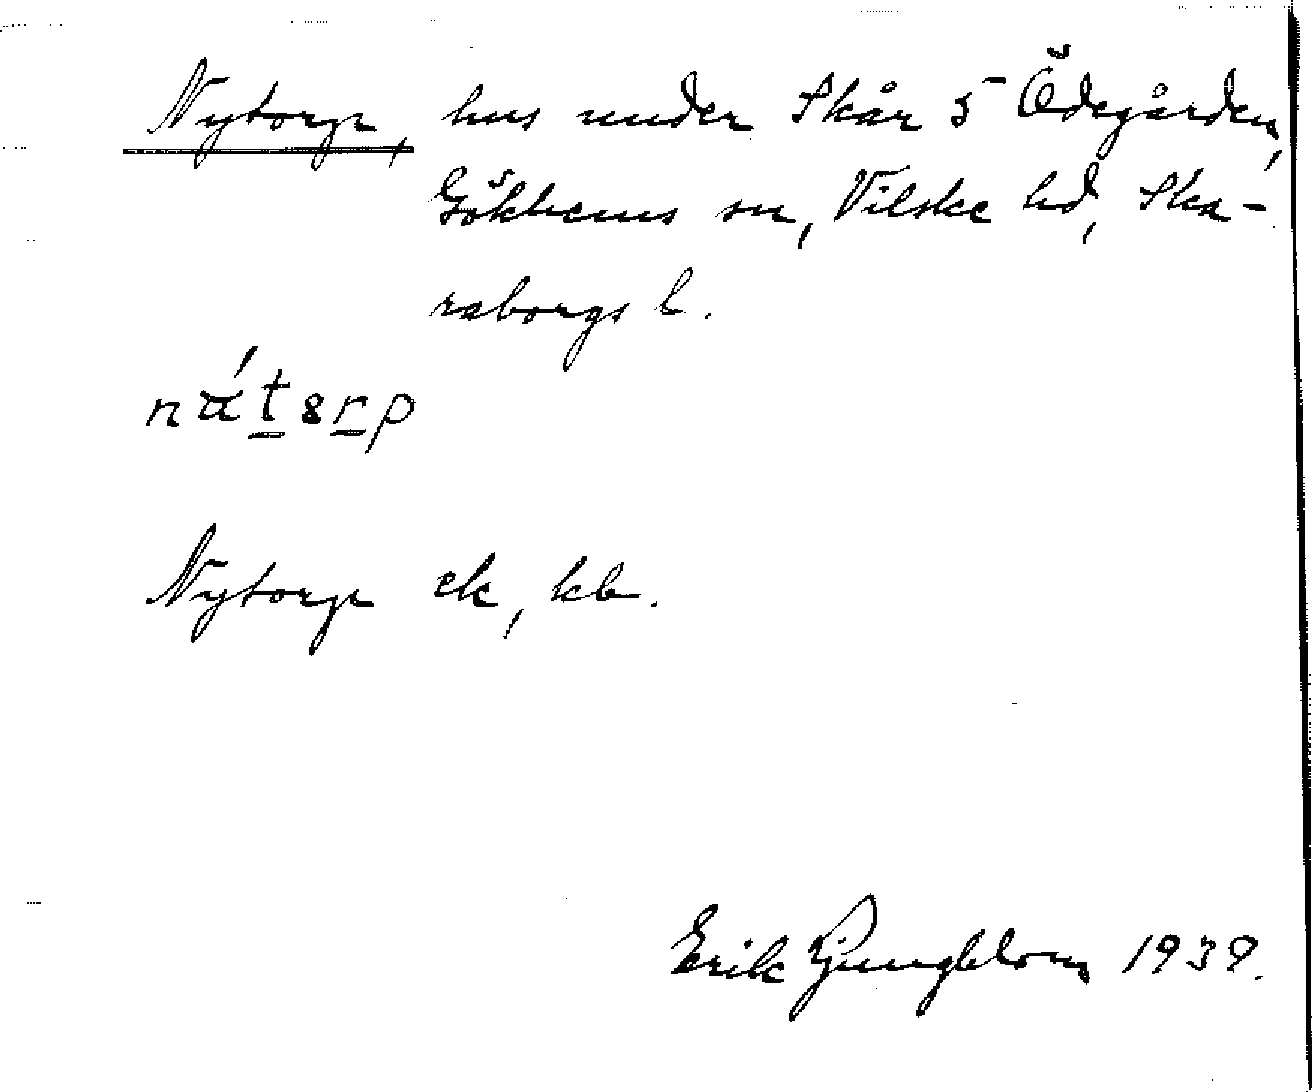 Nytorp, hus under Skår 5 Ödegården,
Gökhems sn, Vilske hd, Ska-
raborgs l.
Nytorp ek, kb.
Erik Ljungblom 1939.